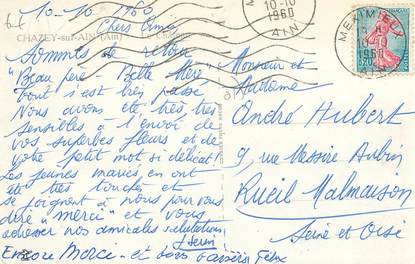 6€
10-10-1960
Chers Amis
CHAZEY-sur-AIN (Ain)
Sommes de retour
"Beau père - Belle Mère"
Tout s'est très bien passé
Nous avons été très très
sensibles à l'envoi de
vos superbes fleurs et de
votre petit mot si délicat!
Les jeunes mariés en ont
été très touchés et
se joignent à nous pour vous
dire "merci" et vous
adresser nos amicales salutations
Encore Merci - et bons baisers
MEXIMIEUX
10-10
1960
AIN
Monsieur et
Madame
André Hubert
9, rue Messire Aubin
Rueil Malmaison
Seine et Oise